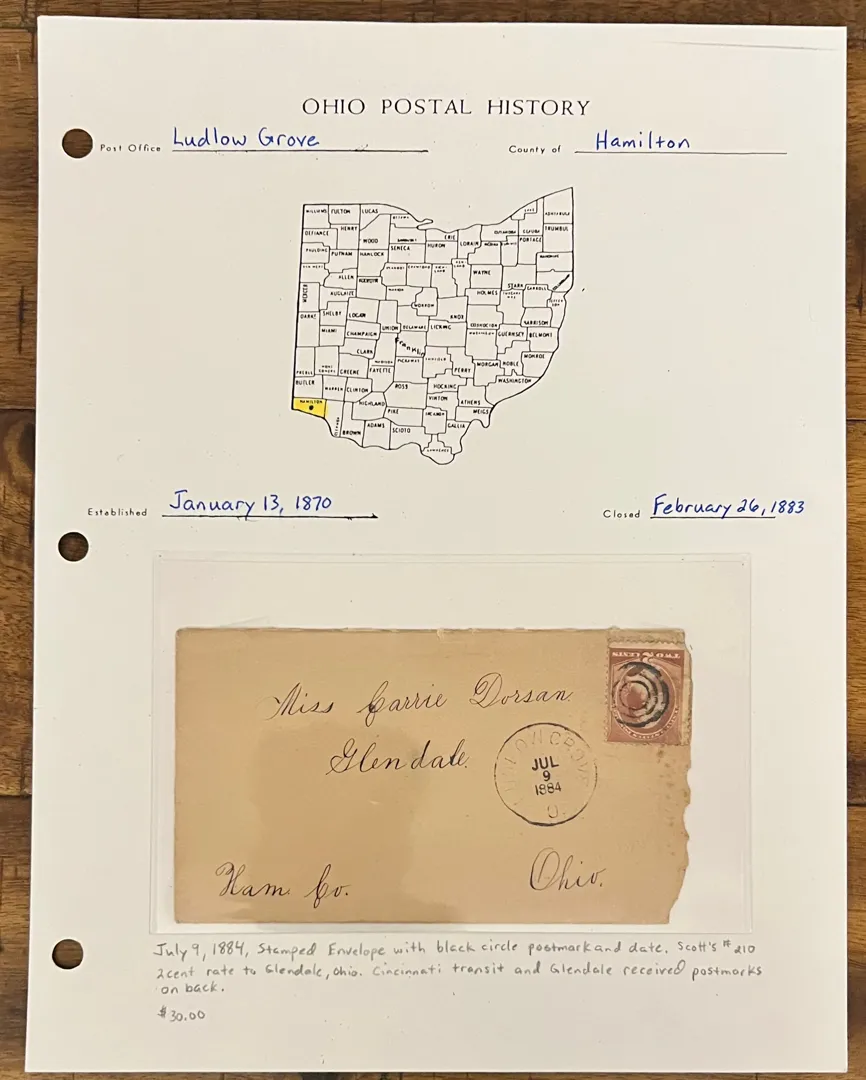 OHIO POSTAL HISTORY
Post Office Ludlow Grove County of Hamilton
WILLIAMS FULTON LUCAS
ASHTABULA
DEFIANCE HENRY WOOD SENECA HURON ERIE LORAIN PORTAGE TRUMBUL
PAULDING PUTNAM HANCOCK
ALLEN WAYNE STARK CARROLL
MERCER AUGLAIZE HOLMES
DARKE SHELBY LOGAN MORROW KNOX COSHOCTON HARRISON
MIAMI CHAMPAIGN UNION DELAWARE LICKING GUERNSEY BELMONT
CLARK Franklin MONROE
PREBLE GREENE FAYETTE PICKAWAY PERRY MORGAN NOBLE
BUTLER WARREN CLINTON ROSS HOCKING WASHINGTON
HAMILTON HIGHLAND PIKE VINTON ATHENS MEIGS
BROWN ADAMS SCIOTO GALLIA
LAWRENCE
Established January 13, 1870 Closed February 26, 1883
TWO 2 CENTS
Miss Carrie Dorsan
Glendale.
JUL
9
1884
O.
Ham. Co. Ohio.
July 9, 1884, Stamped Envelope with black circle postmark and date. Scott's #210
2cent rate to Glendale, Ohio. Cincinnati transit and Glendale received postmarks
on back.
$30.00